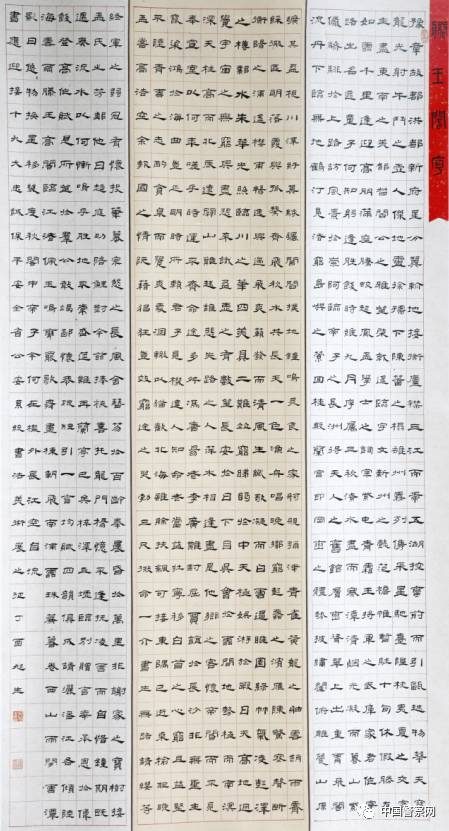 滕王閣序
豫章故郡洪都新府星分翼軫地接衡廬襟三江而帶五湖控蠻荊而引甌越物華天寶
龍光射牛斗之墟人傑地靈徐孺下陳蕃之榻雄州霧列俊采星馳臺隍枕夷夏之交賓
主盡東南之美都督閻公之雅望棨戟遙臨宇文新州之懿範襜帷暫駐十旬休暇勝友
如雲千里逢迎高朋滿座騰蛟起鳳孟學士之詞宗紫電青霜王將軍之武庫家君作宰
路出名區童子何知躬逢勝餞時維九月序屬三秋潦水盡而寒潭清煙光凝而暮山紫
儼驂騑於上路訪風景於崇阿臨帝子之長洲得天人之舊館層巒聳翠上出重霄飛閣
流丹下臨無地鶴汀鳧渚窮島嶼之縈迴桂殿蘭宮即岡巒之體勢披繡闥俯雕甍山原
曠其盈視川澤紆其駭矚閭閻撲地鐘鳴鼎食之家舸艦彌津青雀黃龍之舳雲銷雨霽
彩徹區明落霞與孤鶩齊飛秋水共長天一色漁舟唱晚響窮彭蠡之濱雁陣驚寒聲斷
衡陽之浦遙襟甫暢逸興遄飛爽籟發而清風生纖歌凝而白雲遏睢園綠竹氣凌彭澤
之樽鄴水朱華光照臨川之筆四美具二難並窮睇眄於中天極娛遊於暇日天高地迥
覺宇宙之無窮興盡悲來識盈虛之有數望長安於日下目吳會於雲間地勢極而南溟
深天柱高而北辰遠關山難越誰悲失路之人萍水相逢盡是他鄉之客懷帝閽而不見
奉宣室以何年嗟乎時運不齊命途多舛馮唐易老李廣難封屈賈誼於長沙非無聖主
竄梁鴻於海曲豈乏明時所賴君子見機達人知命老當益壯寧移白首之心窮且益堅不
墜青雲之志酌貪泉而覺爽處涸轍以猶歡北海雖賒扶搖可接東隅已逝桑榆非晚
孟嘗高潔空餘報國之情阮籍猖狂豈效窮途之哭勃三尺微命一介書生無路請纓等
終軍之弱冠有懷投筆慕宗愨之長風舍簪笏於百齡奉晨昏於萬里非謝家之寶樹接
孟氏之芳鄰他日趨庭叨陪鯉對今茲捧袂喜托龍門楊意不逢撫凌雲而自惜鍾期既
遇奏流水以何慚嗚乎勝地不常盛筵難再蘭亭已矣梓澤丘墟臨別贈言幸承恩於偉
餞登高作賦是所望於群公敢竭鄙懷恭疏短引一言均賦四韻俱成請灑潘江各傾陸
海云爾滕王高閣臨江渚佩玉鳴鸞罷歌舞畫棟朝飛南浦雲珠簾暮卷西山雨閒雲潭
影日悠悠物換星移幾度秋閣中帝子今何在檻外長江空自流
書應迎接十九大忠誠保平安全省公安系統書法美術展之征丁酉旭生
中国警察网